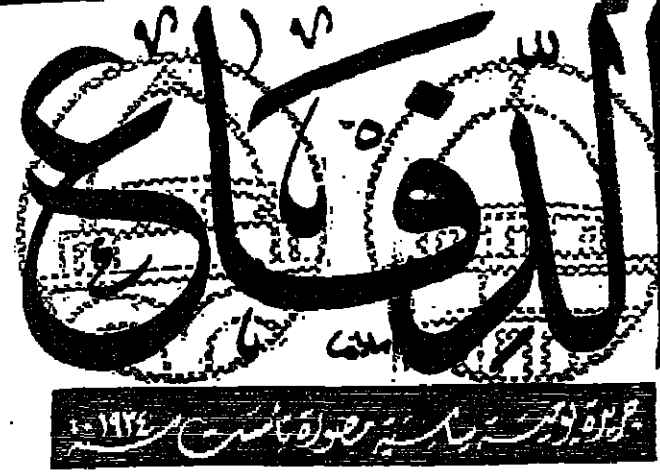 الدفاع
جريدة يومية سياسية مصورة تأسست سنة ١٩٣٤